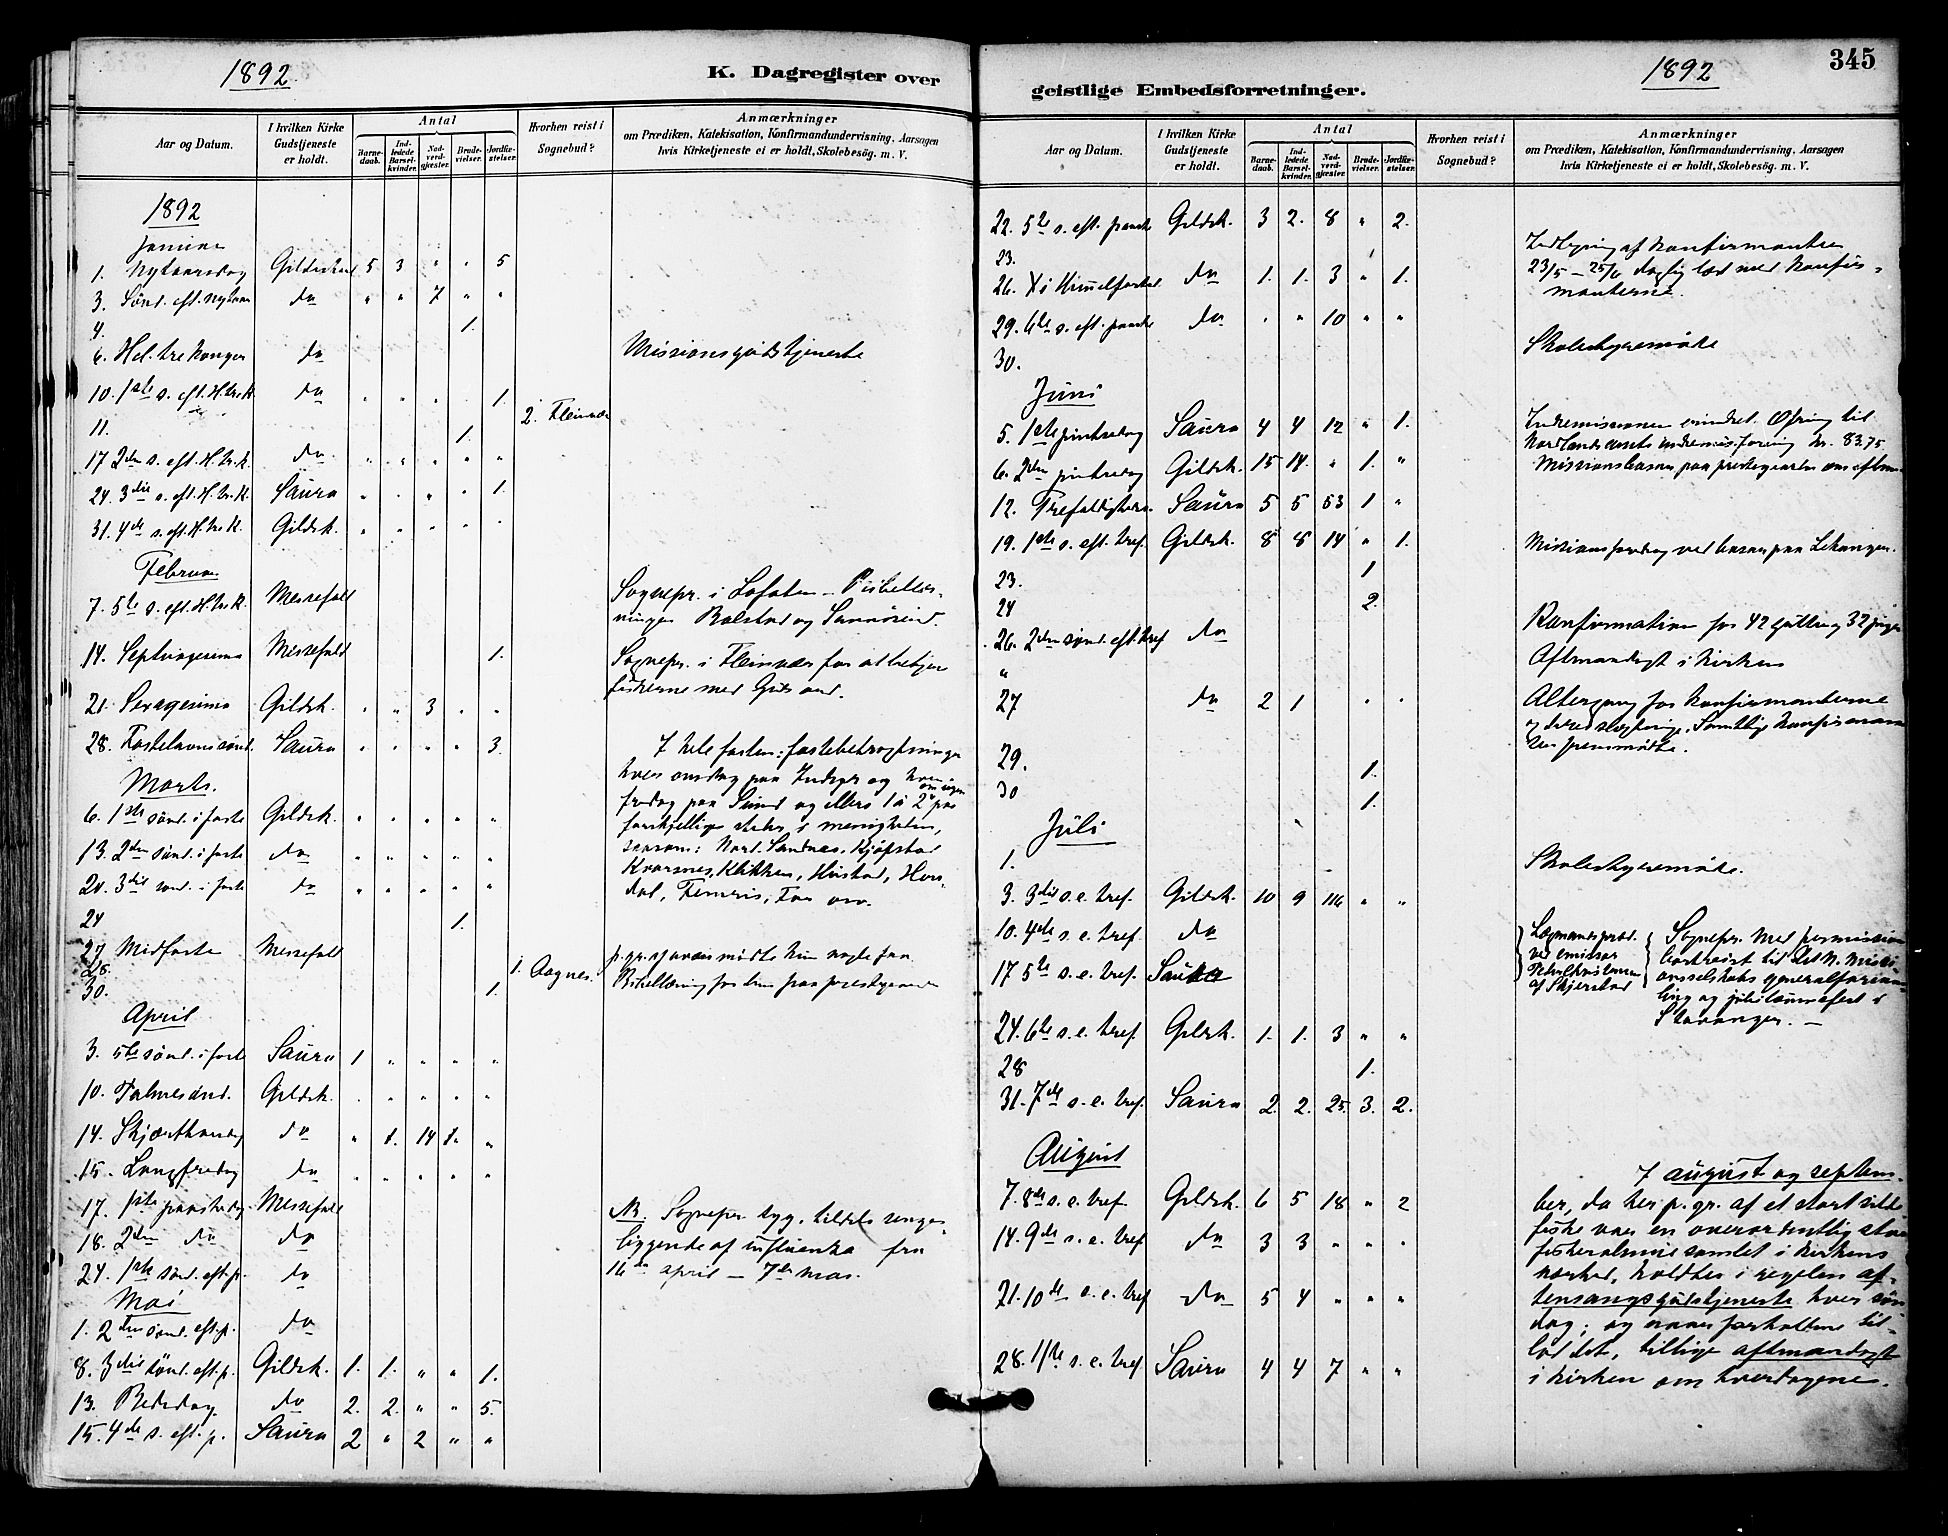 1892
K. Dagregister over
Aar og Datum.
I hvilken Kirke Gudstjeneste er holdt.
Antal
Barnedaab.
Indledede Barselkvinder.
Nadverdgjæster.
Brudevielser.
Jordfæstelser.
Hvorhen reist i Sognebud?
Anmærkninger
om Prædiken, Katekisation, Konfirmandundervisning, Aarsagen
hvis Kirketjeneste ei er holdt, Skolebesög. m. V.
1892
Januar
1. Nytaarsdag Gildeskaal 5 3 " " 5
3. Sönd. eft. nytaar do " " 7 " "
4. 1.
6. Hel. tre konger do Missionsgudstjeneste
10. 1ste s. eft. H. tr. K. do " " " " 1.
11. 1. 2. Fleinvær
17 2den s. eft. H. tr. K. do " " " " "
24. 3die s. eft. H. tr. K. Saura " " " " 1.
31. 4de s. eft. H. tr. K. Gildsk. " " " " "
Februar
7. 5te s. eft. H. tr. K. Messefald Sognepr. i Lofoten
Balstad og
14. Septuagesima Messefald 1. Sognepr. i Fleinvær for at betjene
fiskerne med Guds ord.
21. Sexagesima Gildsk. " " 3 " "
28. Fastelavnssönd. Saura " " " " 3. I hele fasten: fastebetragtninger
Marts.
hver onsdag paa Indyr og hver
6. 1ste sönd. i faste Gildsk. " " " " " fredag paa Sund og ellers 1 à 2 paa
forskjellige steder i menigheden,
13. 2den sönd. i faste do " " " " " saasom: Nord. Sandnæs, Kjøpstad
20. 3die sönd. i faste do " " " " " Kvarsnes, Klikken, Hustad,
24 1.
27. Midfaste Messefald p. gr. af mødte kun nogle faa
28. 1. Aagnes. Bibellæsning for dem paa prestegaarden
30. 1.
April
3. 5te sönd. i faste Saura 1 " " " "
10. Palmesönd. Gildsk. " " " " "
14. Skjærthorsdag do " 1. 14 1. "
15. Langfredag do " " " " "
17. 1ste paaskedag Messefald NB. Sognepr. syg, tildels sengeliggende
18. 2den do do af influenza fra
24. 1ste sönd. eft. p. do 16de april — 7de mai.
Mai
1. 2den sönd. eft. p. do
8. 3die sönd. eft. p. Gildsk. 1. 1. " " 1.
13. Bededag do 2. 2. " " 5.
15. 4de s. eft. p. Saura 2 " 2 " "
geistlige Embedsforretninger.
1892
345
Aar og Datum.
I hvilken Kirke Gudstjeneste er holdt.
Antal
Barnedaab.
Indledede Barselkvinder.
Nadverdgjæster.
Brudevielser.
Jordfæstelser.
Hvorhen reist i Sognebud?
Anmærkninger
om Prædiken, Katekisation, Konfirmandundervisning, Aarsagen
hvis Kirketjeneste ei er holdt, Skolebesög. m. V.
22. 5te s. eft. paaske Gildsk. 3 2. 8 " 2.
23. Indtegning af konfirmanter
26. Kristi Himmelfartsd. do 1. 1. 3 " 1. 23/5 — 25/6 daglig læst med konfirmanterne.
29. 6te s. eft. paaske do " " 10 " "
30. Skolestyremøte
Juni
5. 1ste pinsedag Saura 4 4 12 " 1. Indremissionen Ofring til
Nordlands amts indremis.forening kr. 83.75
6. 2den pinsedag Gildsk. 15 14. " 1. " Missionsbasar paa prestegaarden om efterm.
12. Trefoldigheds Saura 5 5 53 1 "
19. 1ste s. eft. tref. Gildsk. 8 8 14 " 1. Missionsforedrag ved basar paa Lekanger.
23. 1
24 2.
26. 2den sönd. eft. tref do Konfirmation for 42 gutter og 32 piger
" Aftenandagt i kirken
27 do 2 1 " " Altergang for konfirmanterne
og deres slægtninge. Samtlige konfirmanter
fremmødte.
29. 1.
30 1.
Juli
1. Skolestyremøte.
3. 3die s. e. tref. Gildsk. 10 9 116 " "
10. 4de s. e. tref. do Lægmandspræd.
ved emissær
af Skjerstad
17 5te s. e. tref. Saura Sognepr. med permission
bortreist til det N. Missionsselskabs
generalforsamling
og jubilæumsfest i
Stavanger. —
24. 6te s. e. tref. Gildsk. 1. 1. 3 " "
28 1.
31. 7de s. e. tref. Saura 2. 2. 25. 3. 2.
August
7. 8de s. e. tref Gildsk. 6 5 18 " 2
14. 9de s. e. tref do 3 3 " " "
21. 10de s. e. tref do 5 4 " " "
28. 11te s. e. tref Saura 4 4 7 " "
I august og september,
da her p. gr. af et stort sildefiske
var en overordentlig stor
fiskeralmue samlet i kirkens
nærhed, holdtes i regelen aftensangsgudstjeneste
hver söndag;
og naar forholdene tillod
det, tillige aftenandagt
i kirken om hverdagene.